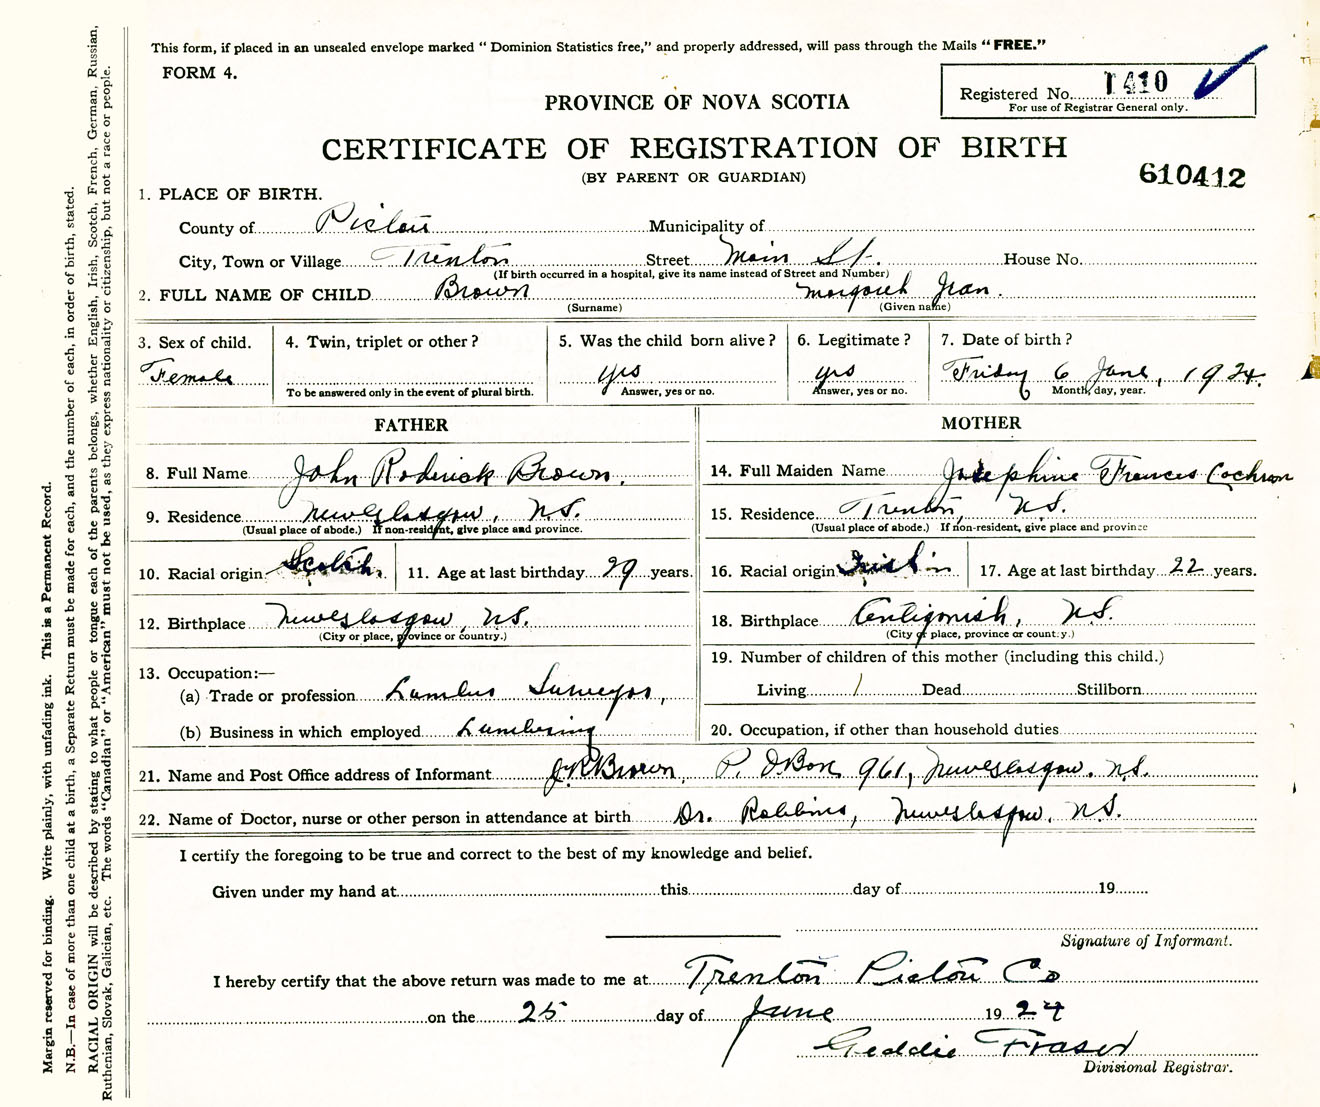 This form, if placed in an unsealed envelope marked “ Dominion Statistics free,” and properly addressed, will pass through the Mails “ FREE.”
FORM 4.
Registered No. 1410
For use of Registrar General only.
PROVINCE OF NOVA SCOTIA
CERTIFICATE OF REGISTRATION OF BIRTH
(BY PARENT OR GUARDIAN)
610412
1. PLACE OF BIRTH.
County of Pictou Municipality of
City, Town or Village Trenton Street Main St. House No.
(If birth occurred in a hospital, give its name instead of Street and Number)
2. FULL NAME OF CHILD Brown Margaret Jean.
(Surname) (Given name)
3. Sex of child. 4. Twin, triplet or other? 5. Was the child born alive? 6. Legitimate? 7. Date of birth?
Female yes yes Friday 6 June, 1924.
To be answered only in the event of plural birth. Answer, yes or no. Answer, yes or no. Month, day, year.
FATHER
8. Full Name John Roderick Brown.
9. Residence New Glasgow, N.S.
(Usual place of abode.) If non-resident, give place and province.
10. Racial origin Scotch. 11. Age at last birthday 29 years.
12. Birthplace New Glasgow, N.S.
(City or place, province or country.)
13. Occupation:—
(a) Trade or profession Lumber Surveyor,
(b) Business in which employed Lumbering
MOTHER
14. Full Maiden Name Josephine Frances Cochran
15. Residence Trenton, N.S.
(Usual place of abode.) If non-resident, give place and province
16. Racial origin Irish 17. Age at last birthday 22 years.
18. Birthplace Antigonish, N.S.
(City or place, province or country.)
19. Number of children of this mother (including this child.)
Living 1 Dead Stillborn
20. Occupation, if other than household duties
21. Name and Post Office address of Informant J.R. Brown, P.O Box 961, New Glasgow. N.S.
22. Name of Doctor, nurse or other person in attendance at birth Dr. Robbins, New Glasgow, N.S.
I certify the foregoing to be true and correct to the best of my knowledge and belief.
Given under my hand at this day of 19
Signature of Informant.
I hereby certify that the above return was made to me at Trenton Pictou Co
on the 25 day of June 1924
Geddie Fraser
Divisional Registrar.
Margin reserved for binding. Write plainly, with unfading ink. This is a Permanent Record.
N.B.—In case of more than one child at a birth, a Separate Return must be made for each, and the number of each, in order of birth, stated.
RACIAL ORIGIN will be described by stating to what people or tongue each of the parents belongs, whether English, Irish, Scotch, French, German, Russian,
Ruthenian, Slovak, Galician, etc. The words “Canadian” or “American” must not be used, as they express nationality or citizenship, but not a race or people.